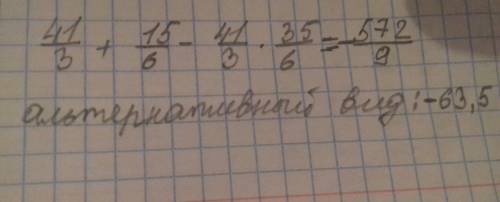 41/3 + 15/6 - 41/3 · 35/6 = -572/9
альтернативный вид: -63,5